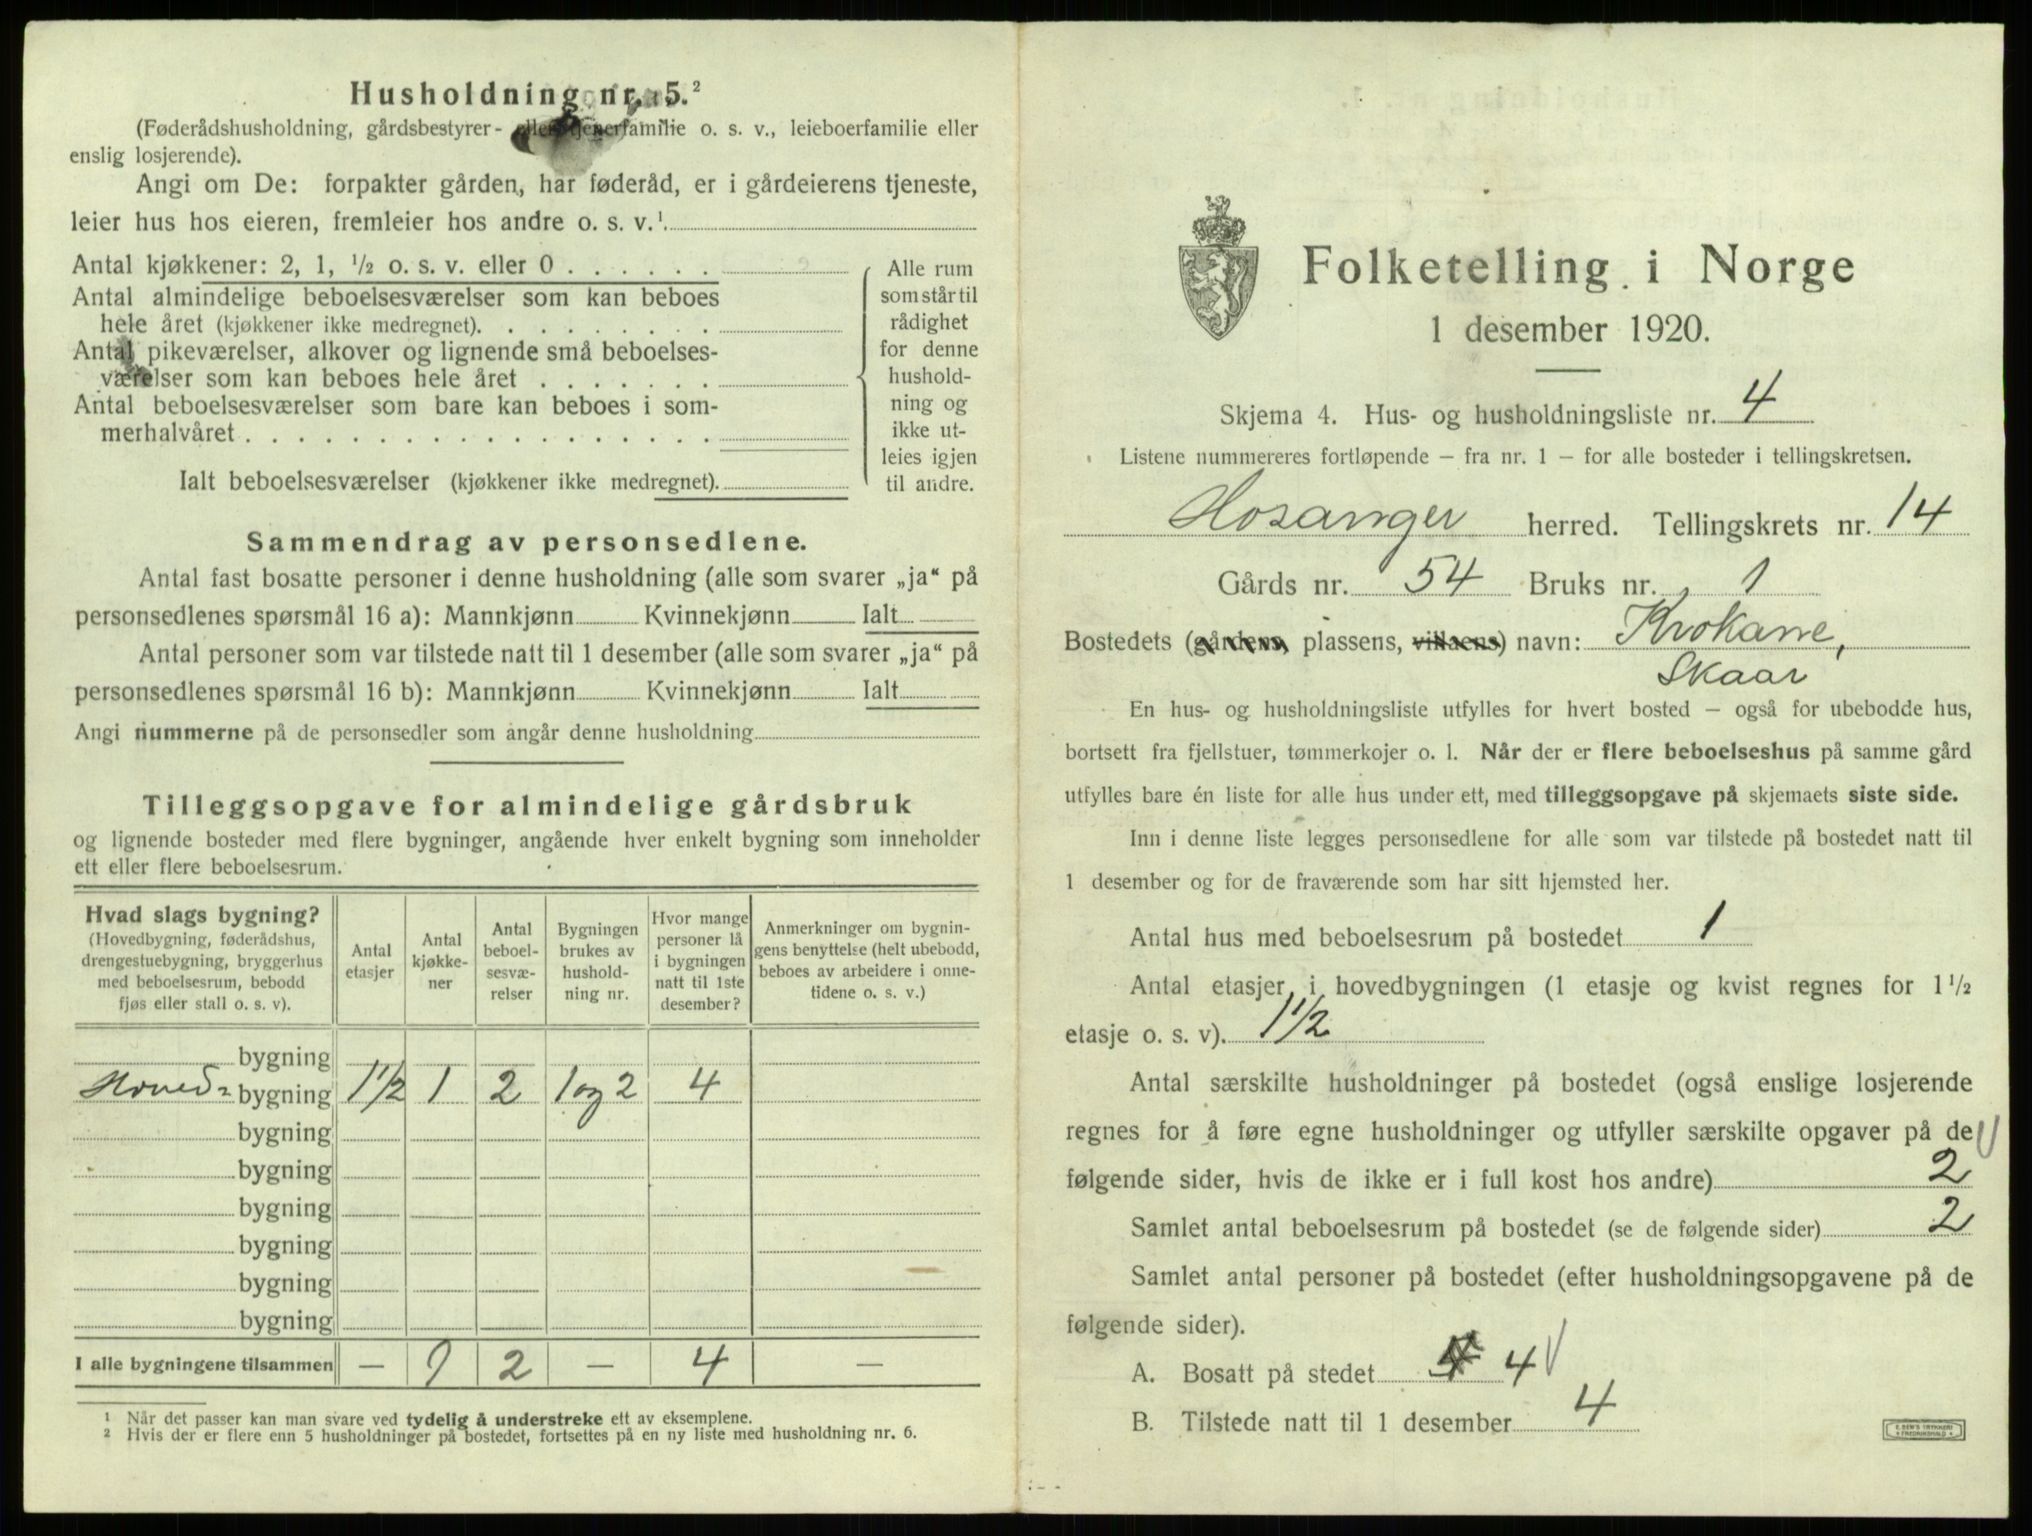 Husholdning nr. 5.²
(Føderådshusholdning, gårdsbestyrer- eller tjenerfamilie o. s. v., leieboerfamilie eller
enslig losjerende).
Angi om De: forpakter gården, har føderåd, er i gårdeierens tjeneste,
leier hus hos eieren, fremleier hos andre o. s. v.¹
Antal kjøkkener: 2, 1, ½ o. s. v. eller 0
Antal almindelige beboelsesværelser som kan beboes
hele året (kjøkkener ikke medregnet).
Antal pikeværelser, alkover og lignende små beboelses-
værelser som kan beboes hele året
Antal beboelsesværelser som bare kan beboes i som-
merhalvåret
Ialt beboelsesværelser (kjøkkener ikke medregnet).
Alle rum
som står til
rådighet
for denne
hushold-
ning og
ikke ut-
leies igjen
til andre.
Sammendrag av personsedlene.
Antal fast bosatte personer i denne husholdning (alle som svarer „ja“ på
personsedlenes spørsmål 16 a): Mannkjønn Kvinnekjønn Ialt
Antal personer som var tilstede natt til 1 desember (alle som svarer „ja“ på
personsedlenes spørsmål 16 b): Mannkjønn Kvinnekjønn Ialt
Angi nummerne på de personsedler som angår denne husholdning
Tilleggsopgave for almindelige gårdsbruk
og lignende bosteder med flere bygninger, angående hver enkelt bygning som inneholder
ett eller flere beboelsesrum.
Hvad slags bygning?
(Hovedbygning, føderådshus,
drengestuebygning, bryggerhus
med beboelsesrum, bebodd
fjøs eller stall o. s. v).
Antal
etasjer
Antal
kjøkke-
ner
Antal
beboel-
sesvæ-
relser
Bygningen
brukes av
hushold-
ning nr.
Hvor mange
personer lå
i bygningen
natt til 1ste
desember?
Anmerkninger om bygnin-
gens benyttelse (helt ubebodd,
beboes av arbeidere i onne-
tidene o. s. v.)
bygning
Hoved- bygning 1½ 1 2 1 og 2 4
bygning
bygning
bygning
bygning
bygning
bygning
I alle bygningene tilsammen — 1 2 — 4 —
¹ Når det passer kan man svare ved tydelig å understreke ett av eksemplene.
² Hvis der er flere enn 5 husholdninger på bostedet, fortsettes på en ny liste med husholdning nr. 6.
Folketelling i Norge
1 desember 1920.
Skjema 4. Hus- og husholdningsliste nr. 4
Listene nummereres fortløpende – fra nr. 1 – for alle bosteder i tellingskretsen.
Hosanger herred. Tellingskrets nr. 14
Gårds nr. 54 Bruks nr. 1
Bostedets (gårdens, plassens, villaens) navn: Krokane,
Skaar
En hus- og husholdningsliste utfylles for hvert bosted – også for ubebodde hus,
bortsett fra fjellstuer, tømmerkojer o. l. Når der er flere beboelseshus på samme gård
utfylles bare én liste for alle hus under ett, med tilleggsopgave på skjemaets siste side.
Inn i denne liste legges personsedlene for alle som var tilstede på bostedet natt til
1 desember og for de fraværende som har sitt hjemsted her.
Antal hus med beboelsesrum på bostedet 1
Antal etasjer i hovedbygningen (1 etasje og kvist regnes for 1½
etasje o. s. v). 1½
Antal særskilte husholdninger på bostedet (også enslige losjerende
regnes for å føre egne husholdninger og utfyller særskilte opgaver på de
følgende sider, hvis de ikke er i full kost hos andre) 2
Samlet antal beboelsesrum på bostedet (se de følgende sider) 2
Samlet antal personer på bostedet (efter husholdningsopgavene på de
følgende sider).
A. Bosatt på stedet 4
B. Tilstede natt til 1 desember 4